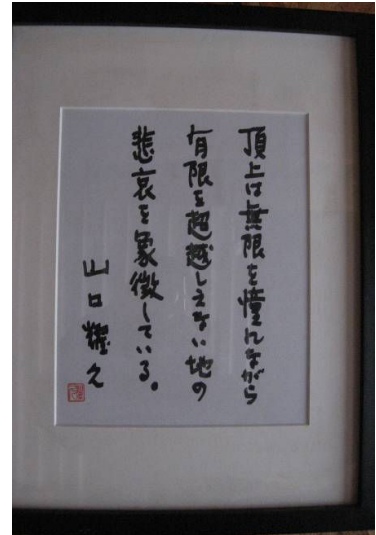 頂上は無限を憧れながら
有限を超越しえない地の
悲哀を象徴している。
山口耀久